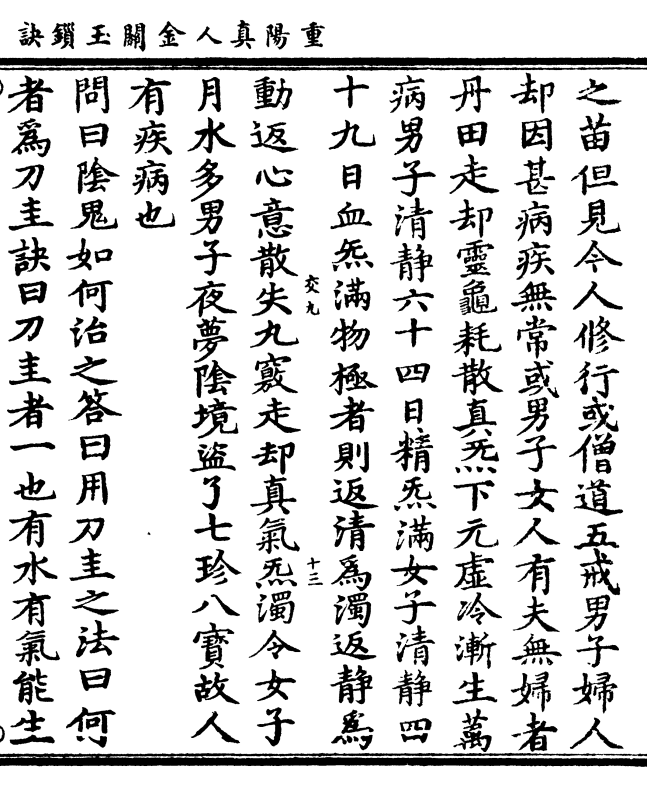 重陽真人金關玉鎖訣
之苗但見今人修行或僧道五戒男子婦人
却因甚病疾無常或男子女人有夫無婦者
丹田走却靈龜耗散真炁下元虛冷漸生萬
病男子清静六十四日精炁滿女子清静四
十九日血炁滿物極者則返清爲濁返静爲
動返心意散失九竅走却真氣炁濁令女子
交九
十三
月水多男子夜夢陰境盜了七珍八寶故人
有疾病也
問曰陰鬼如何治之答曰用刀圭之法曰何
者爲刀圭訣曰刀圭者一也有水有氣能生